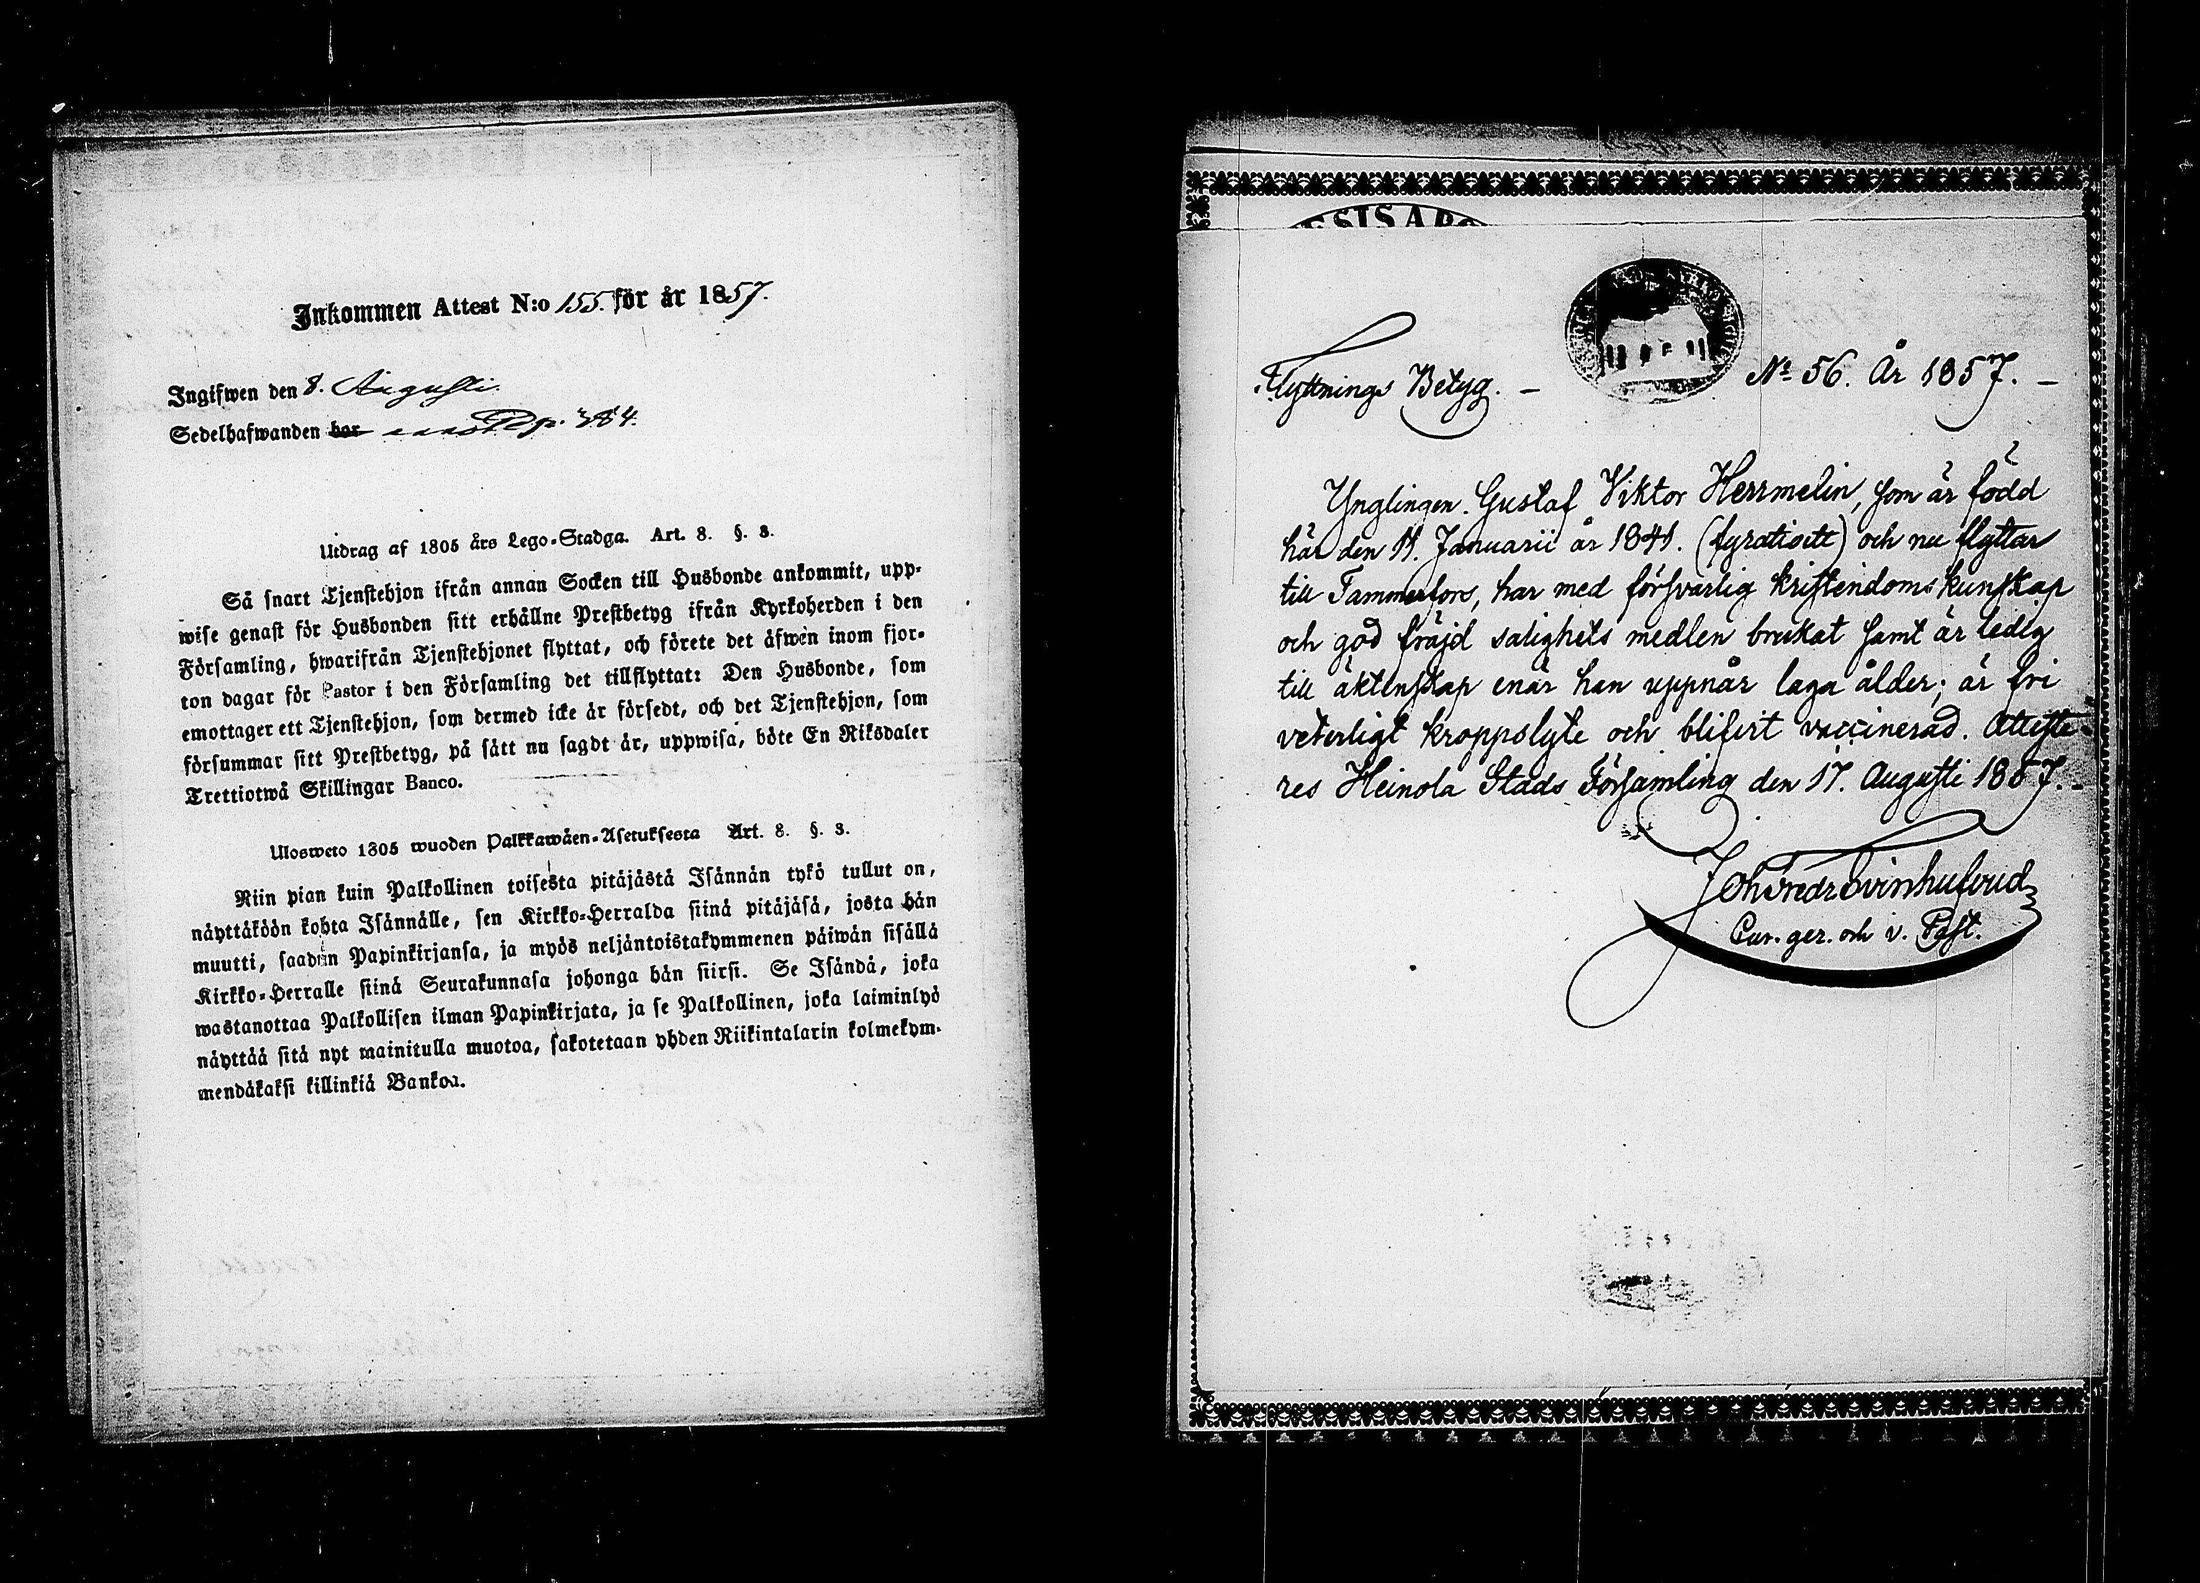 Inkommen Attest N:o 155. för år 1857.
Ingifwen den 8. Augusti.
Sedelhafwanden har p. 284.
Utdrag af 1805 års Lego-Stadga. Art. 8. §. 3.
Så snart Tjenstehjon ifrån annan Socken till Husbonde ankommit, upp-
wise genast för Husbonden sitt erhållne Prestbetyg ifrån Kyrkoherden i den
Församling, hwarifrån Tjenstehjonet flyttat, och förete det äfwen inom fjor-
ton dagar för Pastor i den Församling det tillflyttat: Den Husbonde, som
emottager ett Tjenstehjon, som dermed icke är försedt, och det Tjenstehjon, som
försummar sitt Prestbetyg, på sätt nu sagdt är, uppwisa, böte En Riksdaler
Trettiotwå Skillingar Banco.
Ulosweto 1805 wuoden Palkkawäen-Asetuksesta Art. 8. §. 3.
Niin pian kuin Palkollinen toisesta pitäjästä Isännän tykö tullut on,
näyttäköön kohta Isännälle, sen Kirkko-Herralda siinä pitäjäsä, josta hän
muutti, saadun Papinkirjansa, ja myös neljäntoistakymmenen päiwän sisällä
Kirkko-Herralle siinä Seurakunnasa johonga hän siirsi. Se Isändä, joka
wastanottaa Palkollisen ilman Papinkirjata, ja se Palkollinen, joka laiminlyö
näyttää sitä nyt mainitulla muotoa, sakotetaan yhden Riikintalarin kolmekym-
mendäkaksi killinkiä Bankoa.
Flyttnings Betyg. – No 56. År 1857. –
Ynglingen Gustaf Viktor Herrmelin, som är född
här den 11. Januarii år 1841. (fyratioett) och nu flyttar
till Tammerfors, har med försvarlig kristendoms kunskap
och god fräjd salighets medlen brukat samt är ledig
till äktenskap enär han uppnår laga ålder; är fri
veterligt kroppslyte och blifvit vaccinerad. Atteste-
res Heinola Stads Församling den 17. Augusti 1857. –
Joh Fredr Svinhufvud
Cur. ger. och v. Past.